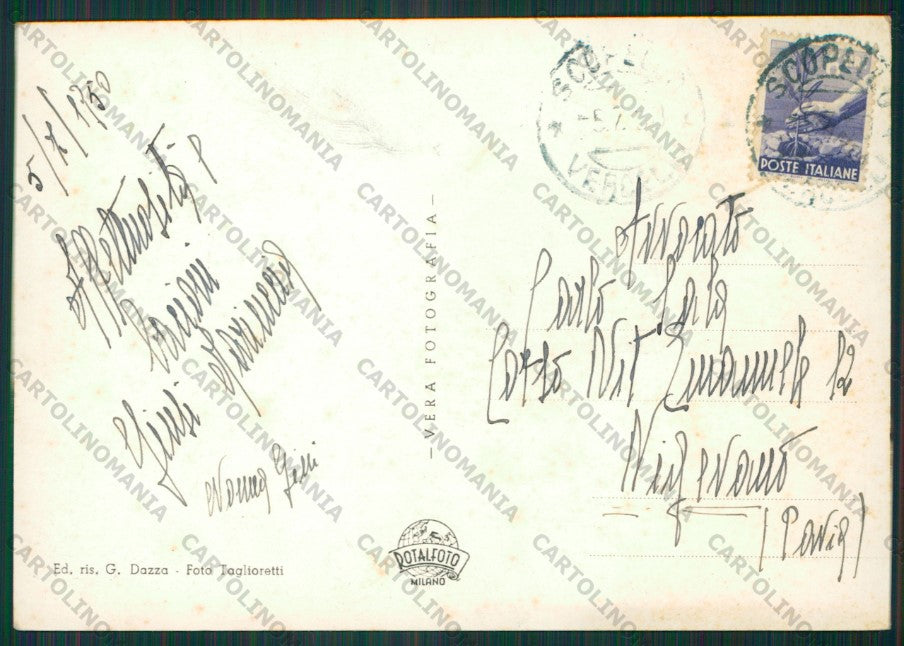 5/7/1950
Affettuosità
Bacioni
Giusi
Nonna Gini
VERA FOTOGRAFIA
ROTALFOTO
MILANO
Ed. ris. G. Dazza - Foto Taglioretti
SCOPELLO
VERCELLI
SCOPELLO
POSTE ITALIANE
Avvocato
Carlo
Corso Vit Emanuele 12
Vigevano
(Pavia)
CARTOLINOMANIA